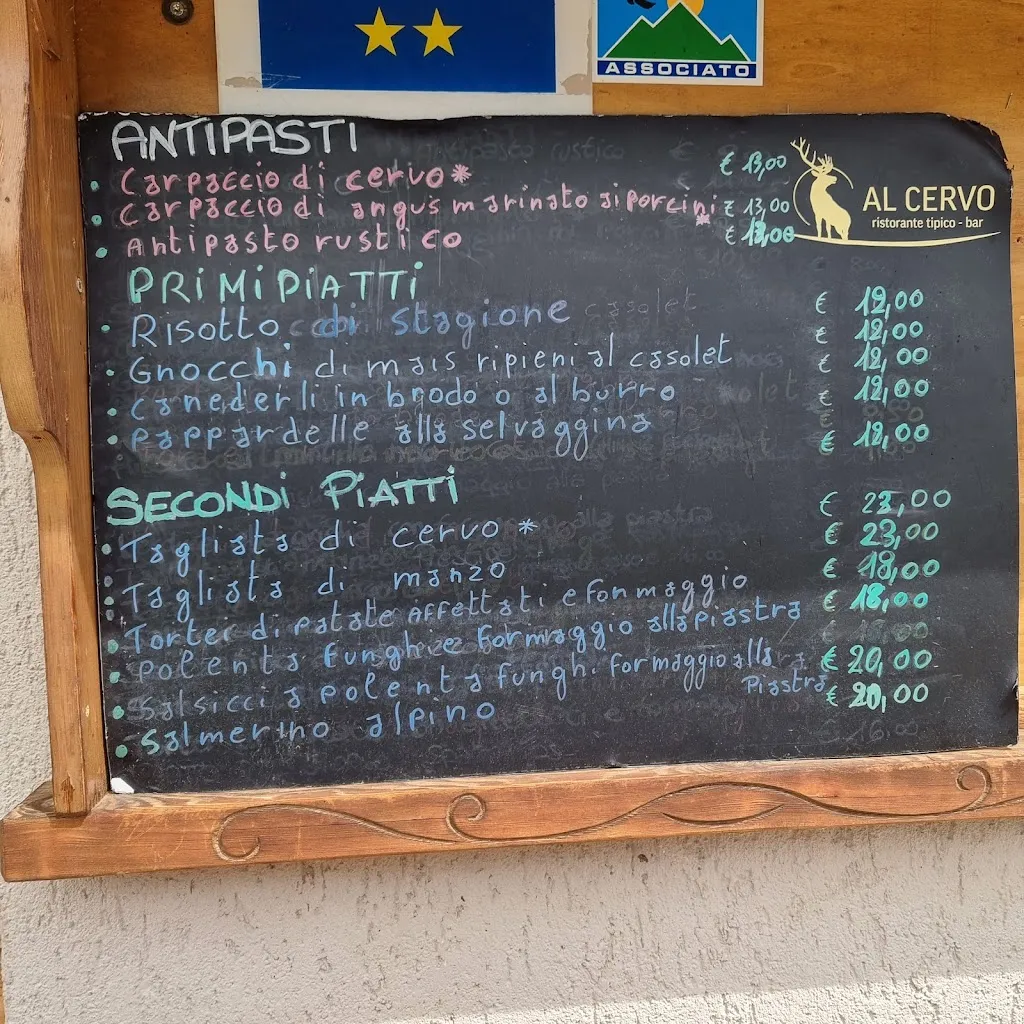 ASSOCIATO
AL CERVO
ristorante tipico - bar
ANTIPASTI
Carpaccio di cervo* € 13,00
Carpaccio di angus marinato ai porcini * € 13,00
Antipasto rustico €
PRIMI PIATTI
Risotto di stagione € 12,00
Gnocchi di mais ripieni al casolet € 12,00
canederli in brodo o al burro € 12,00
€ 12,00
pappardelle alla selvaggina € 12,00
SECONDI PIATTI
Tagliata di cervo * € 23,00
Tagliata di manzo € 23,00
Tortel di patate affettati e formaggio € 18,00
polenta funghi e formaggio alla piastra € 18,00
Salsiccia polenta funghi formaggio alla piastra € 20,00
Salmerino alpino € 20,00